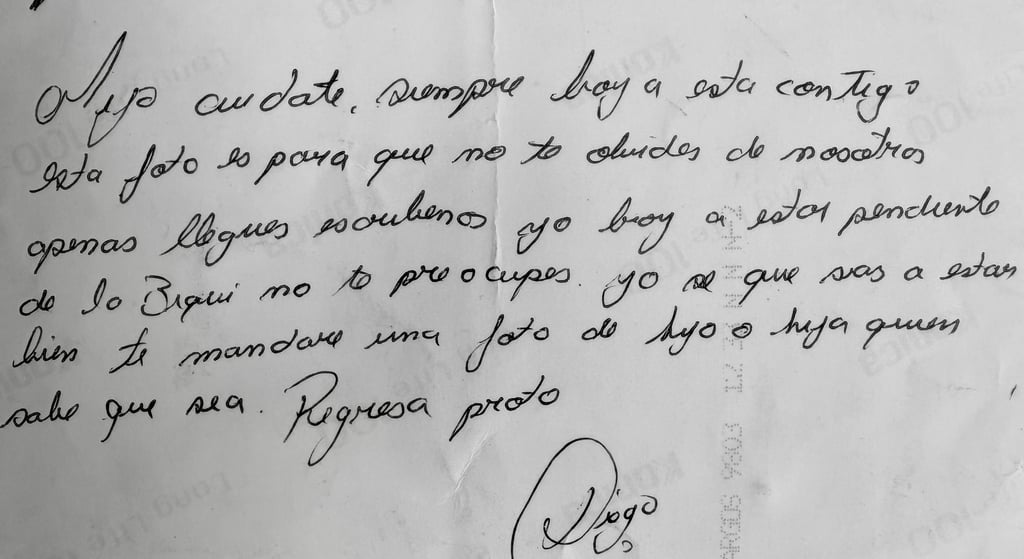 Mija cuidate, siempre boy a esta contigo
esta foto es para que no te olvides de nosotros
apenas llegues escribenos yo boy a estar pendiente
de la Biqui no te preocupes. yo se que vas a estar
bien te mandare una foto de hijo o hija quien
sabe que sea. Regresa proto
Diego